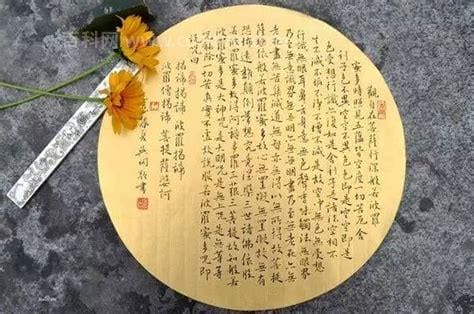 觀自在菩薩行深般若波羅
蜜多時照見五蘊皆空度一切苦厄舍
利子色不異空空不異色色即是空空即是
色受想行識亦復如是舍利子是諸法空相不
生不滅不垢不淨不增不減是故空中無色無受想
行識無眼耳鼻舌身意無色聲香味觸法無眼界
乃至無意識界無無明亦無無明盡乃至無老死亦無
老死盡無苦集滅道無智亦無得以無所得故菩提
薩埵依般若波羅蜜多故心無罣礙無罣礙故無有
恐怖遠離顛倒夢想究竟涅槃三世諸佛依般
若波羅蜜多故得阿耨多羅三藐三菩提故知般若
波羅蜜多是大神咒是大明咒是無上咒是無等等
咒能除一切苦真實不虛故說般若波羅蜜多咒即
說咒曰
揭諦揭諦 波羅揭諦
波羅僧揭諦 菩提薩婆訶